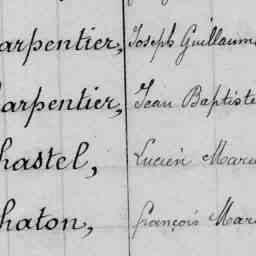 arpentier, Joseph Guillaum
arpentier, Jean Baptiste
hastel, Lucien Marie
haton, François Mar